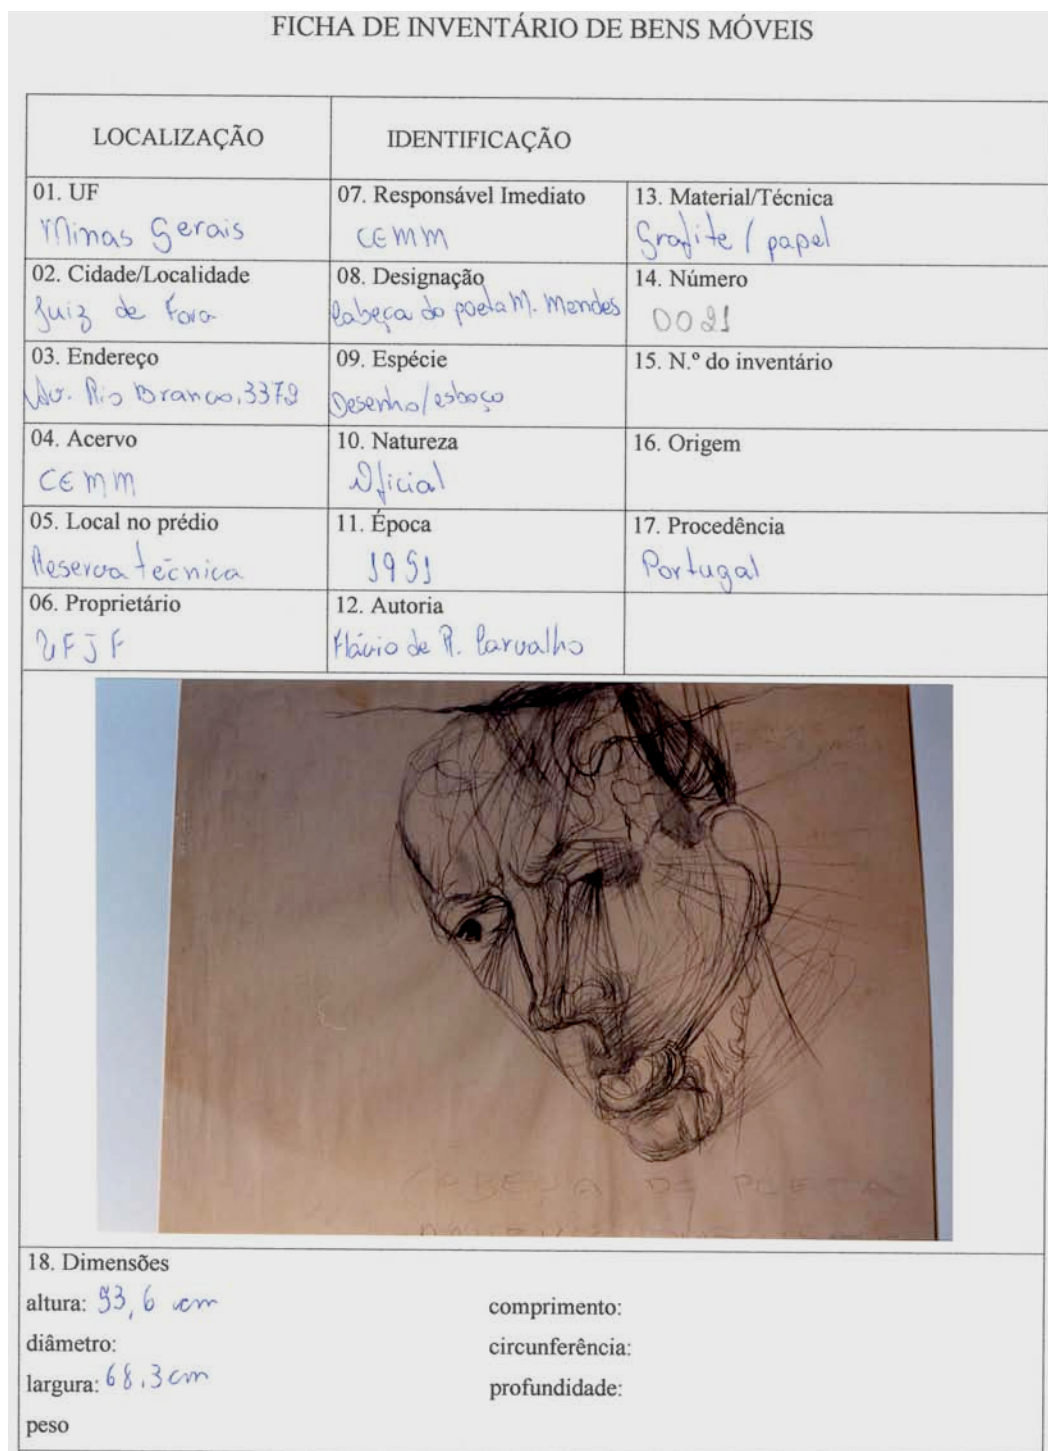 FICHA DE INVENTÁRIO DE BENS MÓVEIS
LOCALIZAÇÃO
IDENTIFICAÇÃO
01. UF
Minas Gerais
07. Responsável Imediato
CEMM
13. Material/Técnica
Grafite / papel
02. Cidade/Localidade
Juiz de Fora
08. Designação
Cabeça do poeta M. Mendes
14. Número
0021
03. Endereço
Av. Rio Branco, 3372
09. Espécie
Desenho/esboço
15. N.º do inventário
04. Acervo
CEMM
10. Natureza
Oficial
16. Origem
05. Local no prédio
Reserva técnica
11. Época
1951
17. Procedência
Portugal
06. Proprietário
UFJF
12. Autoria
Flávio de R. Carvalho
CABEÇA DE POETA
18. Dimensões
altura: 93,6 cm
comprimento:
diâmetro:
circunferência:
largura: 68,3 cm
profundidade:
peso